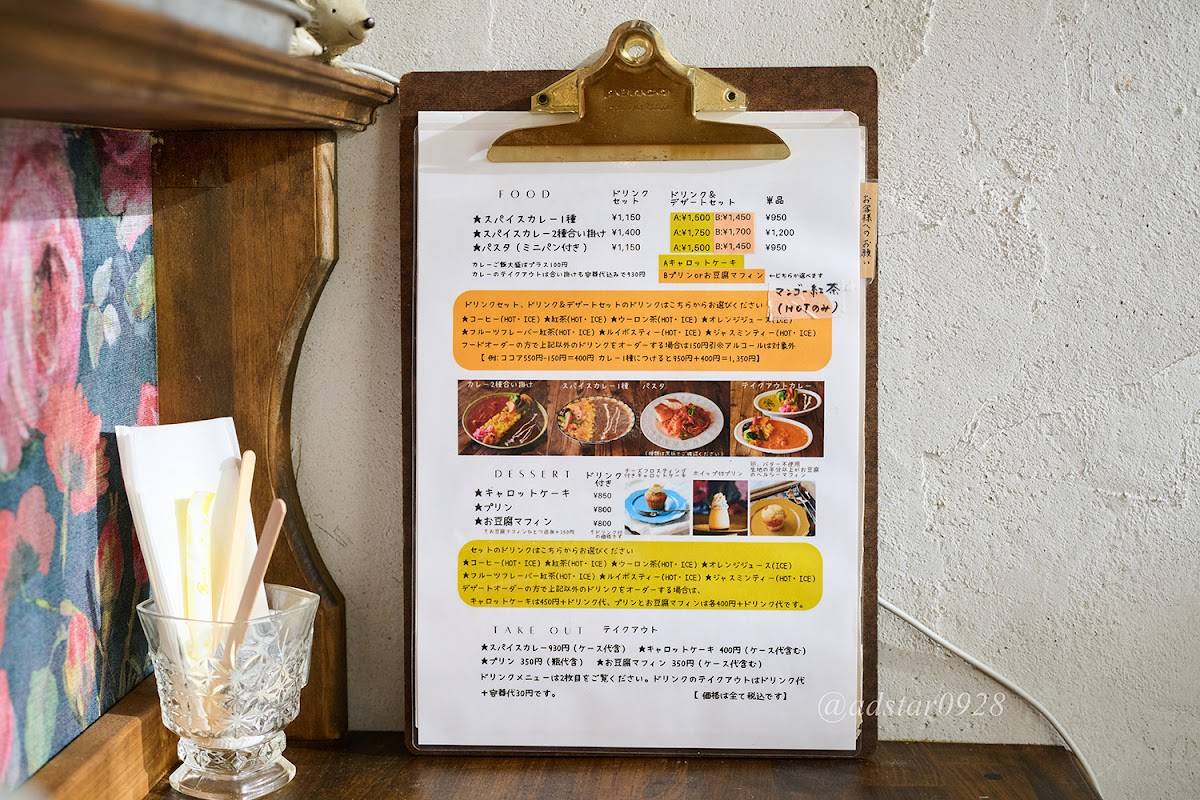 FOOD ドリンクセット ドリンク&デザートセット 単品
★スパイスカレー1種 ¥1,150 A:¥1,500 B:¥1,450 ¥950
★スパイスカレー2種合い掛け ¥1,400 A:¥1,750 B:¥1,700 ¥1,200
★パスタ(ミニパン付き) ¥1,150 A:¥1,500 B:¥1,450 ¥950
Aキャロットケーキ
カレーご飯大盛はプラス100円
カレーのテイクアウトは合い掛けも容器代込みで930円
Bプリンorお豆腐マフィン ←どちらか選べます
お客様へのお願い
マンゴー紅茶
(HOTのみ)
ドリンクセット、ドリンク&デザートセットのドリンクはこちらからお選びください
★コーヒー(HOT・ICE) ★紅茶(HOT・ICE) ★ウーロン茶(HOT・ICE) ★オレンジジュース(ICE)
★フルーツフレーバー紅茶(HOT・ICE) ★ルイボスティー(HOT・ICE) ★ジャスミンティー(HOT・ICE)
フードオーダーの方で上記以外のドリンクをオーダーする場合は150円引※アルコールは対象外
【 例: ココア550円-150円=400円 カレー1種につけると950円+400円=1,350円】
カレー2種合い掛け スパイスカレー1種 パスタ テイクアウトカレー
(種類は黒板でご確認ください)
DESSERT ドリンク付き
チーズフロスティング付きキャロットケーキ
ホイップ付プリン
卵、バター不使用
生地の半分以上がお豆腐
のヘルシーマフィン
★キャロットケーキ ¥850
★プリン ¥800
★お豆腐マフィン ¥800
セットのドリンクはこちらからお選びください
★コーヒー(HOT・ICE) ★紅茶(HOT・ICE) ★ウーロン茶(HOT・ICE) ★オレンジジュース(ICE)
★フルーツフレーバー紅茶(HOT・ICE) ★ルイボスティー(HOT・ICE) ★ジャスミンティー(HOT・ICE)
デザートオーダーの方で上記以外のドリンクをオーダーする場合は、
キャロットケーキは450円+ドリンク代、プリンとお豆腐マフィンは各400円+ドリンク代です。
TAKE OUT テイクアウト
★スパイスカレー930円(ケース代含) ★キャロットケーキ 400円(ケース代含む)
★プリン 350円(瓶代含) ★お豆腐マフィン 350円(ケース代含む)
ドリンクメニューは2枚目をご覧ください。ドリンクのテイクアウトはドリンク代
+容器代30円です。 【 価格は全て税込です】
@adstar0928